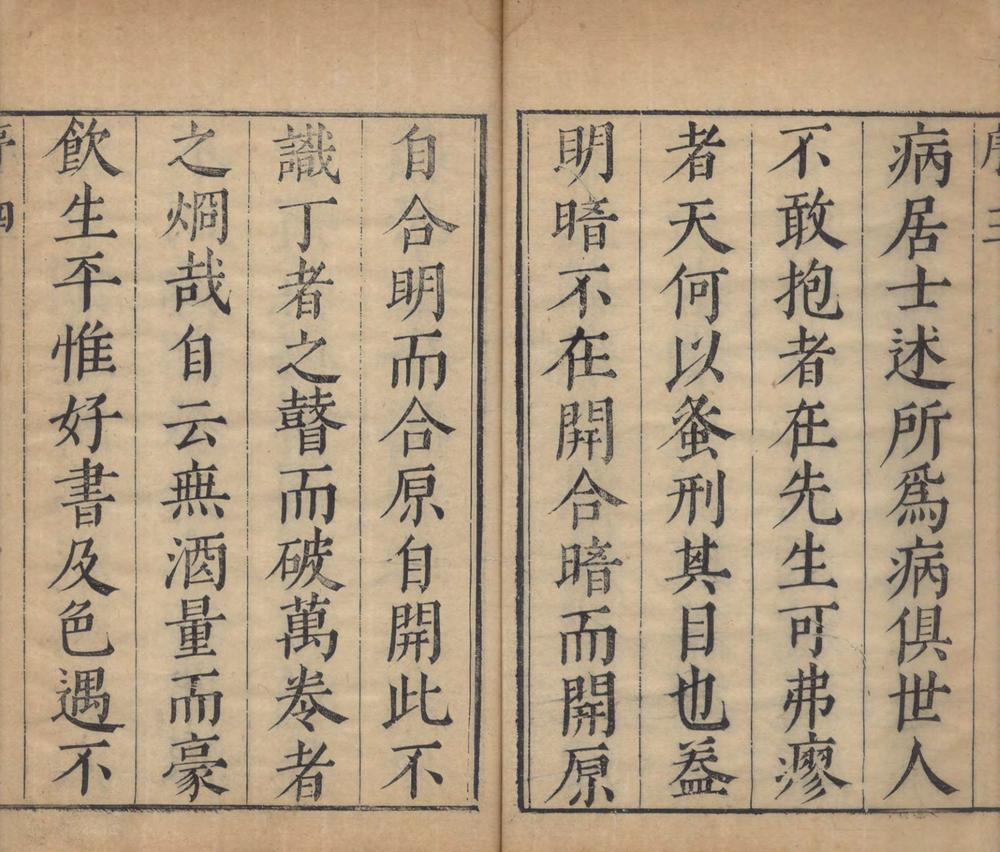 序 三
病居士述所爲病俱世人
不敢抱者在先生可弗瘳
者天何以蚤刑其目也葢
明暗不在開合暗而開原
自合明而合原自開此不
識丁者之瞽而破萬卷者
之烱哉自云無酒量而豪
飲生平惟好書及色遇不
序 四